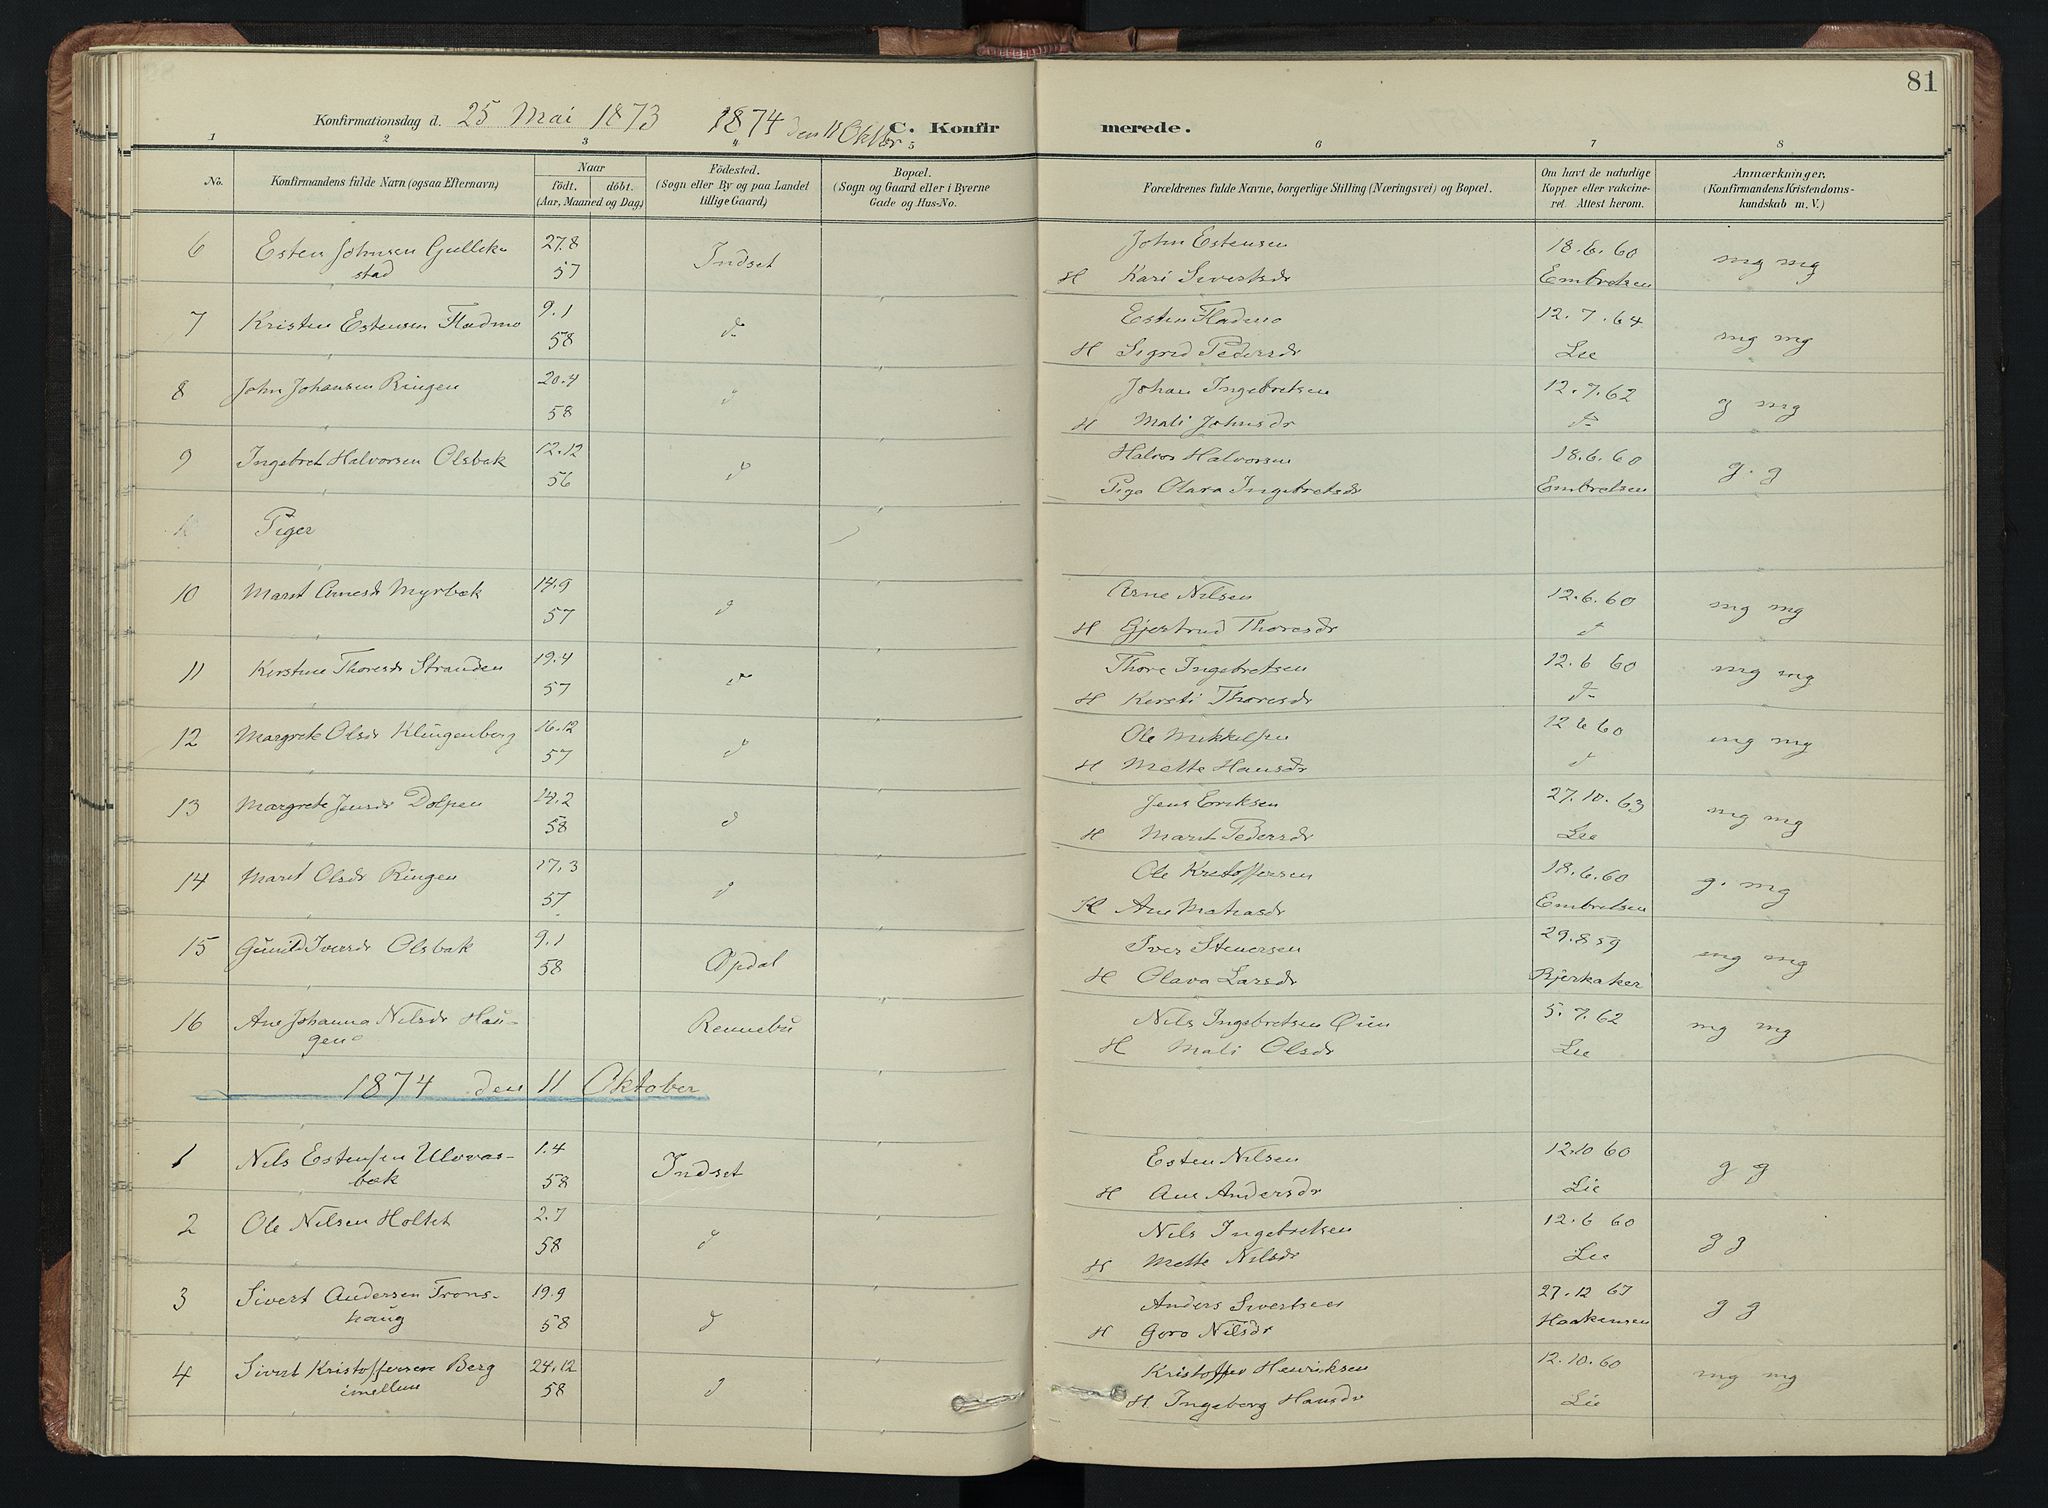 81
Konfirmationsdag d. 25 Mai 1873 1874 den 11 Oktbr C. Konfirmerede.
1 2 3 4 5 6 7 8
No. Konfirmandens fulde Navn (ogsaa Efternavn) Naar födt. döbt. (Aar, Maaned og Dag) Födested. (Sogn eller By og paa Landet tillige Gaard) Bopæl. (Sogn og Gaard eller i Byerne Gade og Hus-No. Forældrenes fulde Navne, borgerlige Stilling (Næringsvei) og Bopæl. Om havt de naturlige Kopper eller vakcineret. Attest herom. Anmærkninger. (Konfirmandens Kristendomskundskab m. V.)
6 Esten Johnsen Gullik- 27.8 Indset John Estensen 18.6.60 mg mg
stad 57 H Kari Sivertsdr Embretsen
7 Kristen Estensen Fladmo 9.1 do Esten Fladmo 12.7.64 mg mg
58 H Sigrid Pedersdr Lie
8 John Johansen Ringen 20.4 d Johan Ingebretsen 12.7.62 g mg
58 H Mali Johnsdr do
9 Ingebret Halvorsen Olsbæk 12.12 d Halvor Halvorsen 18.6.60 g. g
56 Pige Olava Ingebretsdr Embretsen
Piger
10 Marit Arnesdr Myrbæk 14.9 d Arne Nilsen 12.6.60 mg mg
57 H Gjertrud Thoresdr d
11 Kerstine Thoresdr Stranden 19.4 d Thore Ingebretsen 12.6 60 mg mg
57 H Kersti Thoresdr do
12 Margrete Olsdr Klingenberg 16.12 d Ole Mikkelsen 12 6 60 mg mg
57 H Mette Hansdr d
13 Margrete Jensdr Dolpen 14.2 d Jens Eriksen 27.10.63 mg mg
58 H Marit Pedersdr Lie
14 Marit Olsdr Ringen 17.3 d Ole Kristoffersen 18.6.60 g. mg
57 H Ane Matiasdr Embretsen
15 Gunild Iversdr Olsbak 9.1 Opdal Iver Stenersen 29.8 59 mg mg
58 H Olava Larsdr Bjerkaker
16 Ane Johanna Nilsdr Hau- Rennebu Nils Ingebretsen Øien 5.7.62 mg mg
gen H Mali Olsdr Lie
1874 den 11 Oktober
1 Nils Estensen Ulvvas- 1.4 Indset Esten Nilsen 12.10 60 g g
bæk 58 H Ane Andersdr Lie
2 Ole Nilsen Holtet 2.7 d Nils Ingebretsen 12.6 60 g g
58 H Mette Nilsdr Lie
3 Sivert Andersen Trons- 19.9 d Anders Sivertsen 27.12 67 g g
haug 58 H Goro Nilsdr Haakensen
4 Sivert Kristoffersen Berg 24.12 d Kristoffer Henriksen 12.10.60 mg mg
imellem 58 H Ingeborg Hansdr Lie